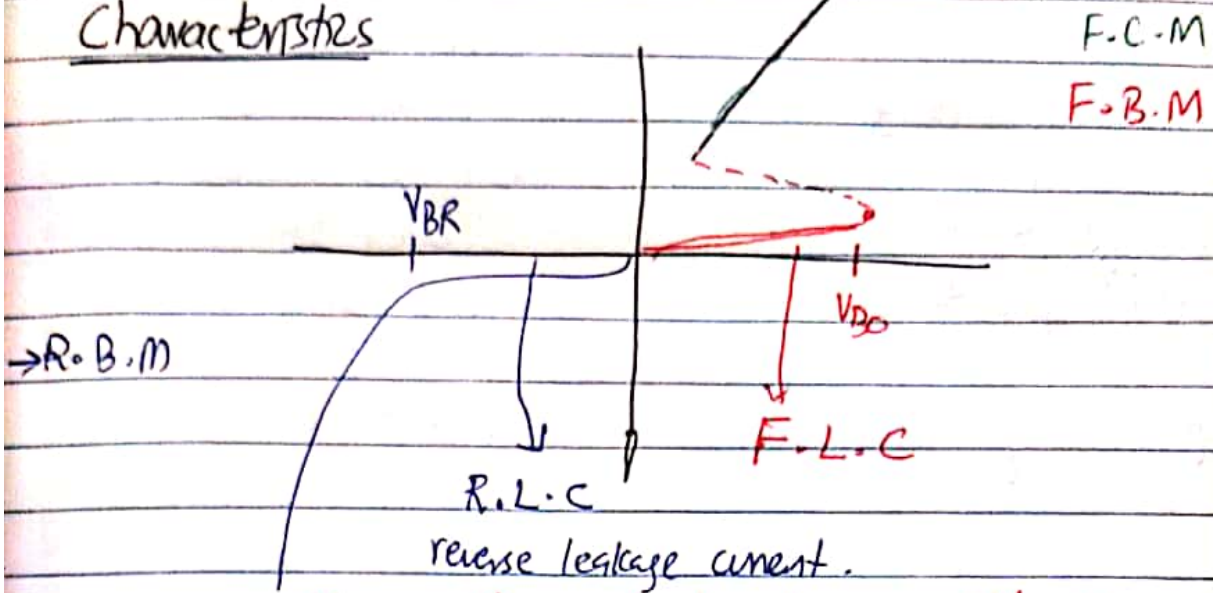 Characteristics
F.C.M
F.B.M
VBR
VBO
→R.B.M
F.L.C
R.L.C
reverse leakage current.